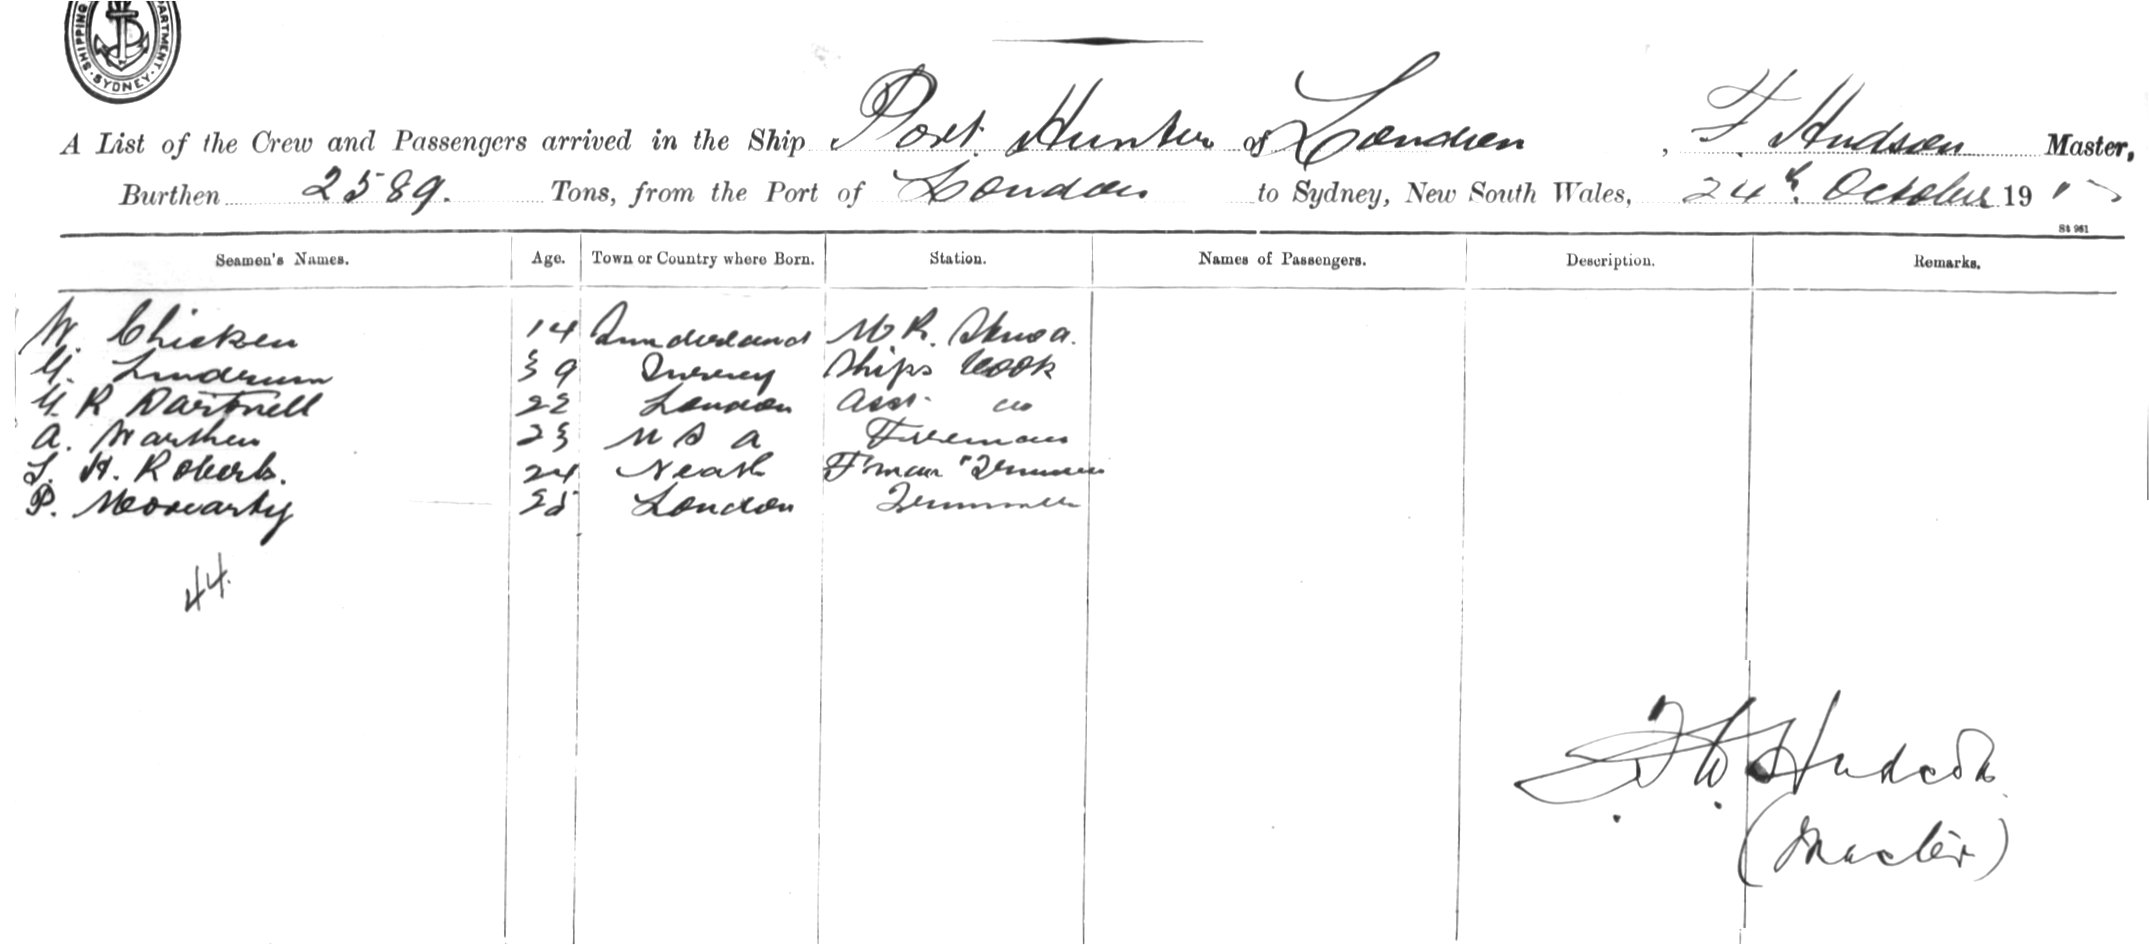 SHIPPING DEPARTMENT · SYDNEY ·
A List of the Crew and Passengers arrived in the Ship Port Hunter of London, F. Hudson Master,
Burthen 2589. Tons, from the Port of London to Sydney, New South Wales, 24th October 191
St 961
Seamen's Names. Age. Town or Country where Born. Station. Names of Passengers. Description. Remarks.
W. Chicken 14 Sunderland M.R. Stwd.
G. Lindrum 39 Surrey Ships Cook
G. R Dartnell 22 London Asst. do
A. 23 U S A Fireman
T. H. Roberts. 24 Neath F'man Trimmer
P. Moriarty London Trimmer
44
F. W. Hudson
(Master)